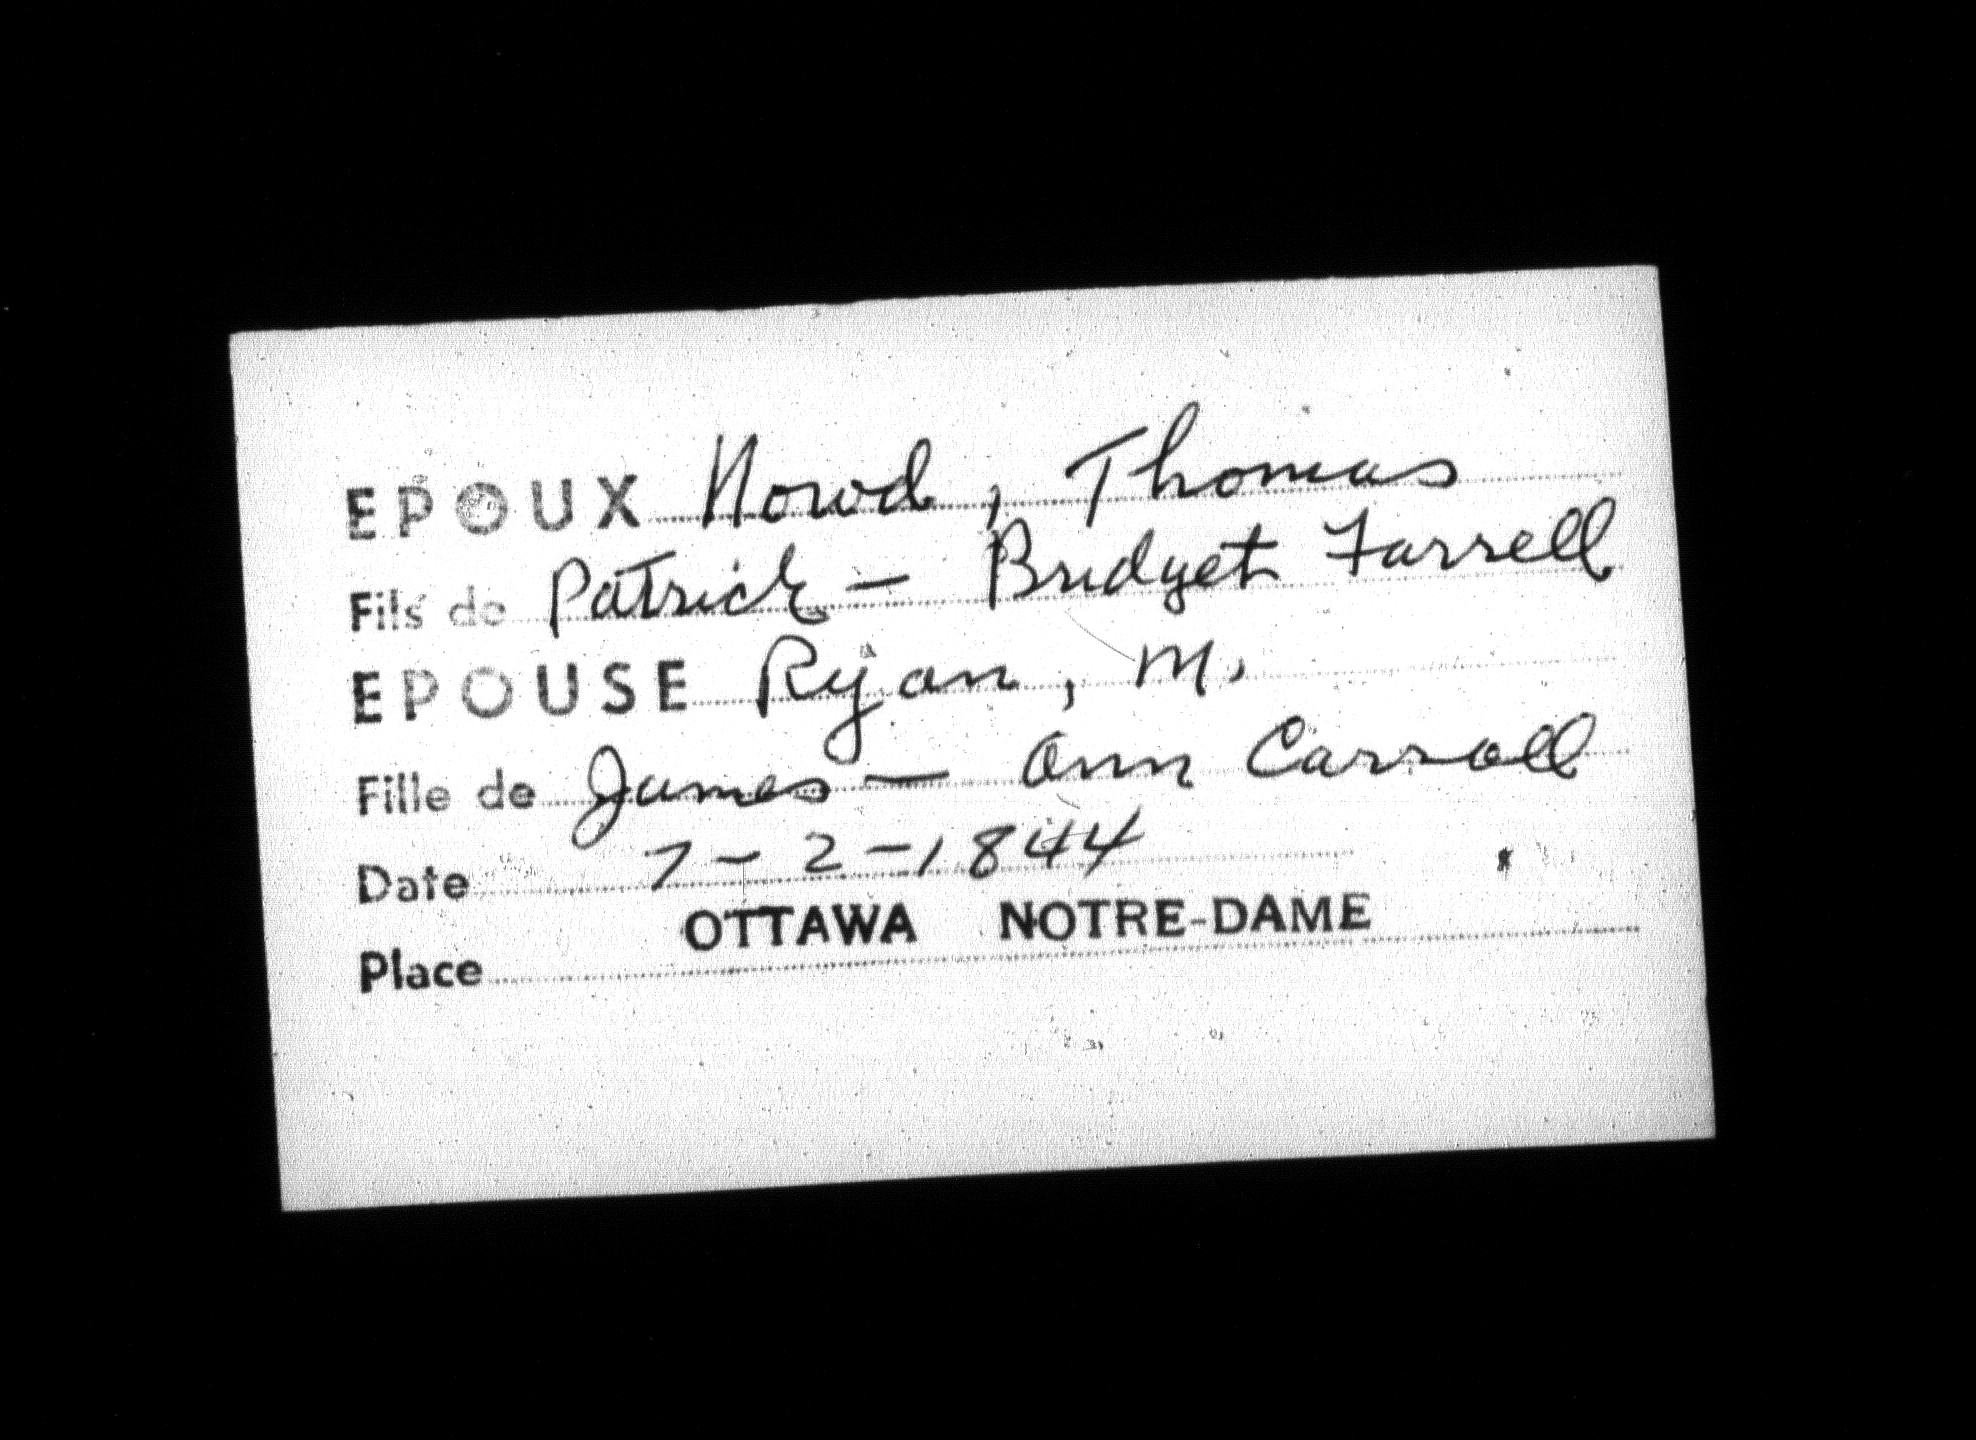 EPOUX Nowd, Thomas
Fils de Patrick - Bridget Farrell
EPOUSE Ryan, M.
Fille de James - Ann Carroll
Date 7-2-1844
Place OTTAWA NOTRE-DAME